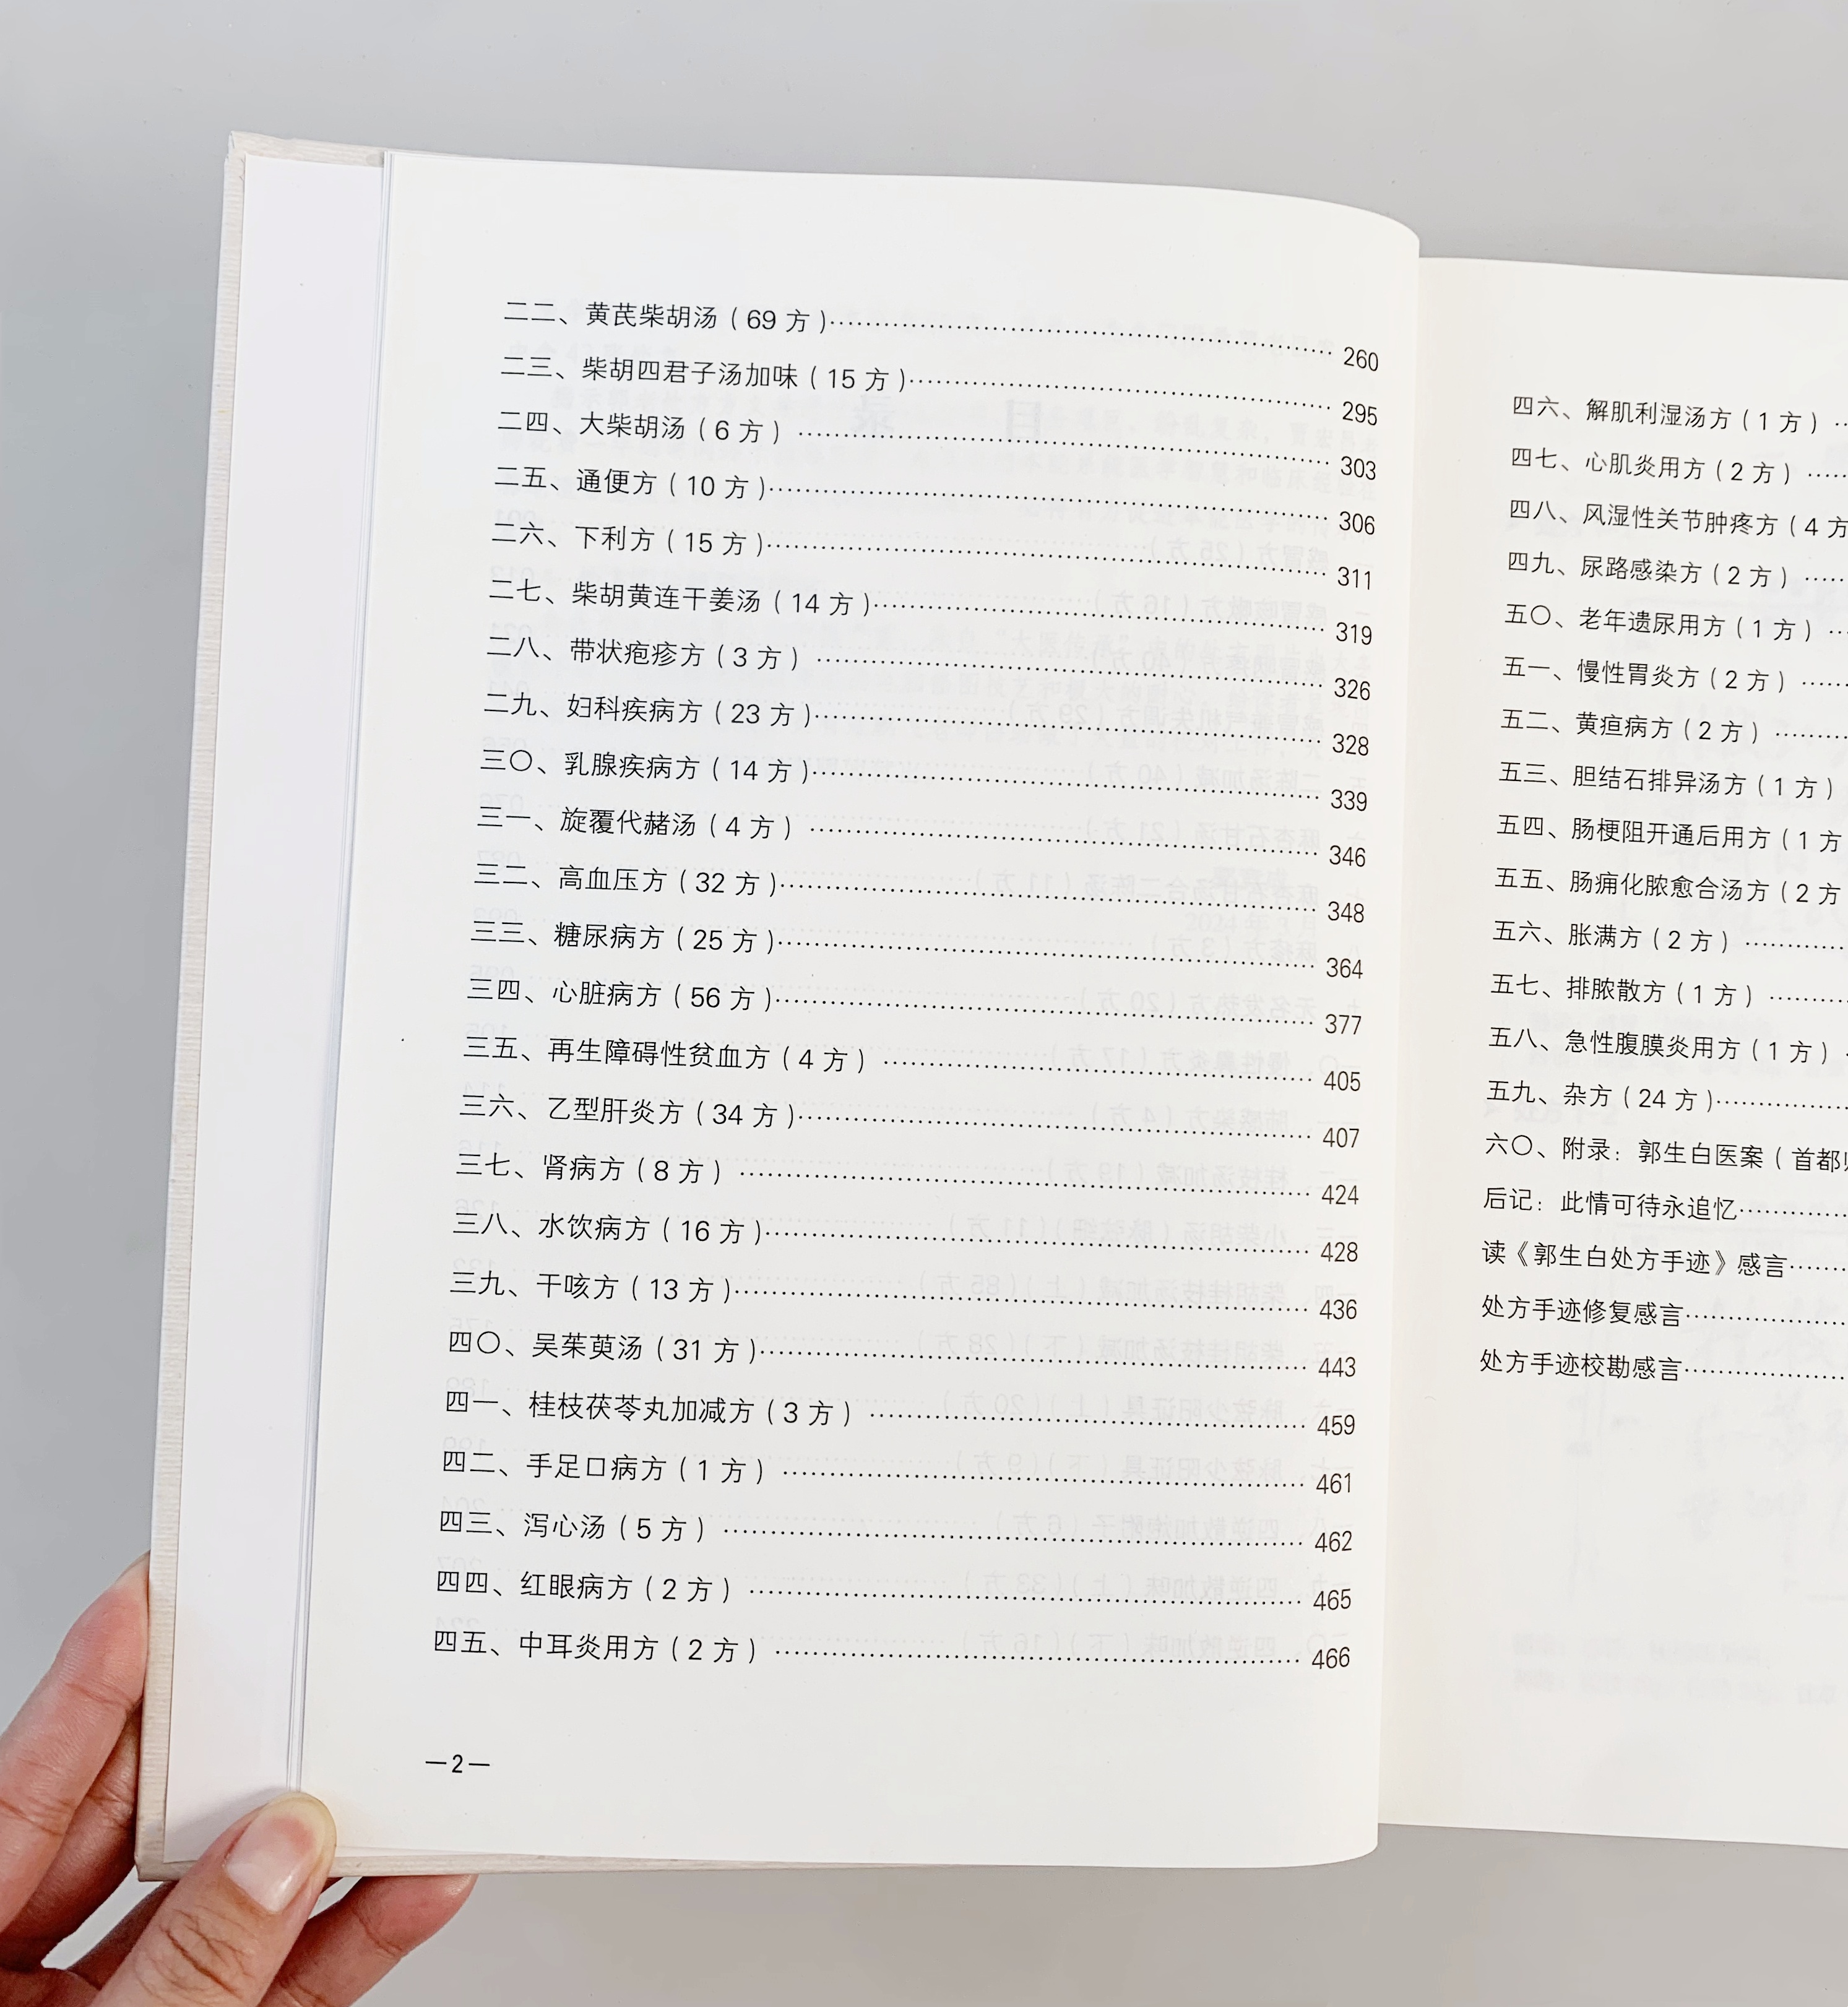 二二、黄芪柴胡汤（69 方）…… 260
二三、柴胡四君子汤加味（15 方）…… 295
二四、大柴胡汤（6 方）…… 303
二五、通便方（10 方）…… 306
二六、下利方（15 方）…… 311
二七、柴胡黄连干姜汤（14 方）…… 319
二八、带状疱疹方（3 方）…… 326
二九、妇科疾病方（23 方）…… 328
三〇、乳腺疾病方（14 方）…… 339
三一、旋覆代赭汤（4 方）…… 346
三二、高血压方（32 方）…… 348
三三、糖尿病方（25 方）…… 364
三四、心脏病方（56 方）…… 377
三五、再生障碍性贫血方（4 方）…… 405
三六、乙型肝炎方（34 方）…… 407
三七、肾病方（8 方）…… 424
三八、水饮病方（16 方）…… 428
三九、干咳方（13 方）…… 436
四〇、吴茱萸汤（31 方）…… 443
四一、桂枝茯苓丸加减方（3 方）…… 459
四二、手足口病方（1 方）…… 461
四三、泻心汤（5 方）…… 462
四四、红眼病方（2 方）…… 465
四五、中耳炎用方（2 方）…… 466
—2—
四六、解肌利湿汤方（1 方）……
四七、心肌炎用方（2 方）……
四八、风湿性关节肿疼方（4 方
四九、尿路感染方（2 方）……
五〇、老年遗尿用方（1 方）……
五一、慢性胃炎方（2 方）……
五二、黄疸病方（2 方）……
五三、胆结石排异汤方（1 方）
五四、肠梗阻开通后用方（1 方
五五、肠痈化脓愈合汤方（2 方
五六、胀满方（2 方）……
五七、排脓散方（1 方）……
五八、急性腹膜炎用方（1 方）
五九、杂方（24 方）……
六〇、附录：郭生白医案（首都
后记：此情可待永追忆……
读《郭生白处方手迹》感言……
处方手迹修复感言……
处方手迹校勘感言……